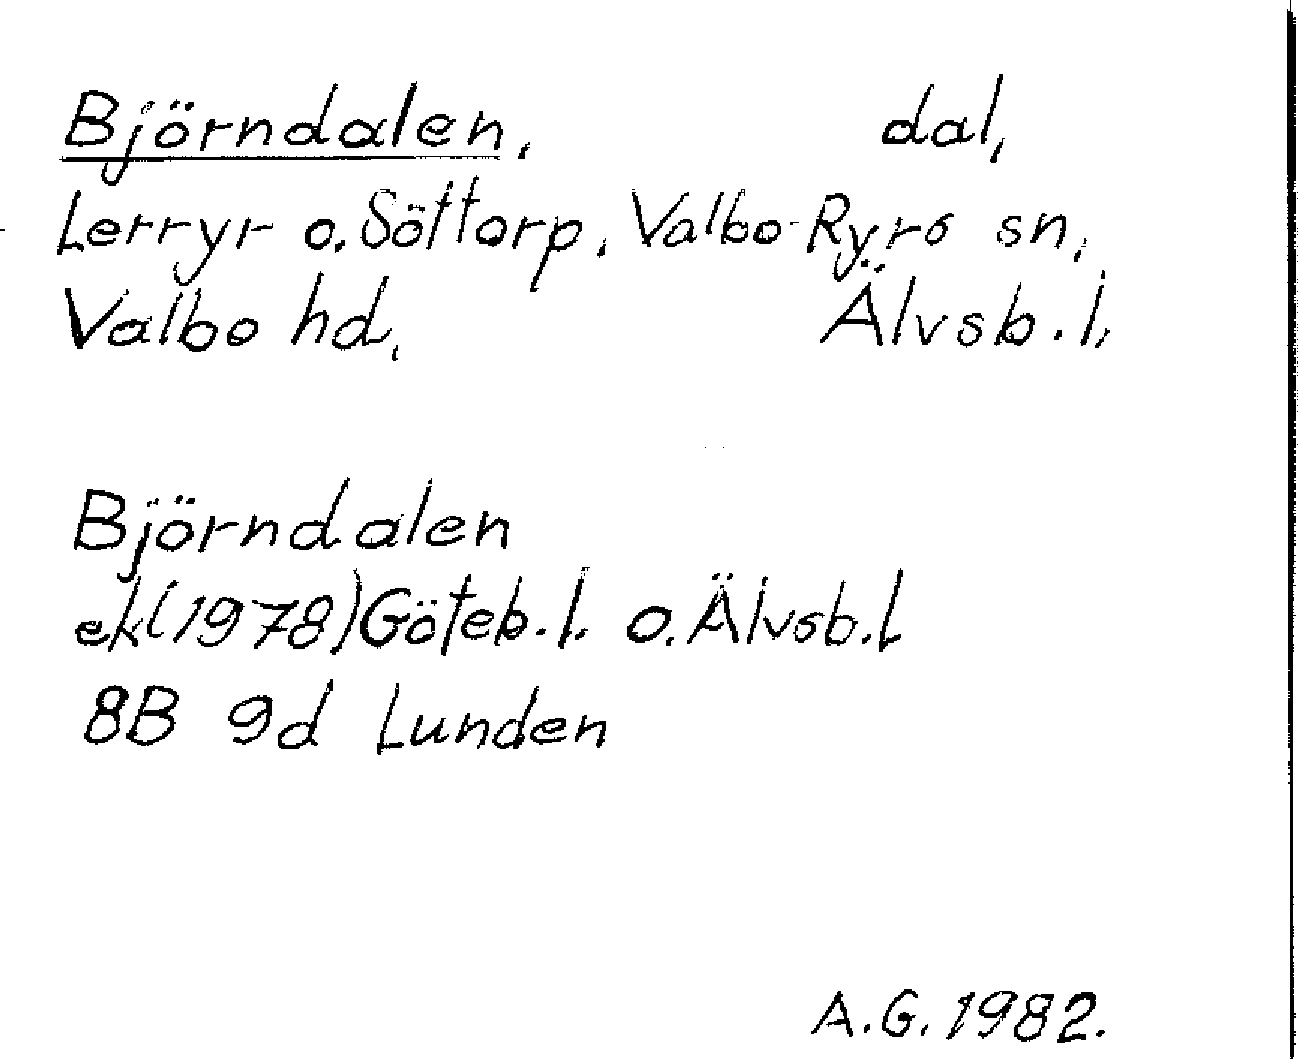 Björndalen, dal,
Lerryr o. Söttorp, Valbo-Ryrs sn,
Valbo hd, Älvsb. l,
Björndalen
ek(1978)Göteb. l. o. Älvsb. l
8B 9d Lunden
A.G. 1982.